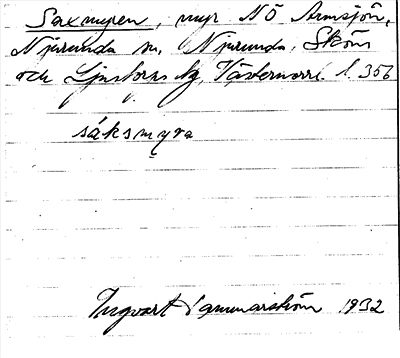 Saxmyren, myr NÖ Armsjön,
Njurunda sn, Njurunda, Sköns
och Ljustorps tg, Västernorrl. l. 356
säksmyra
Ingvart Hammarström 1932